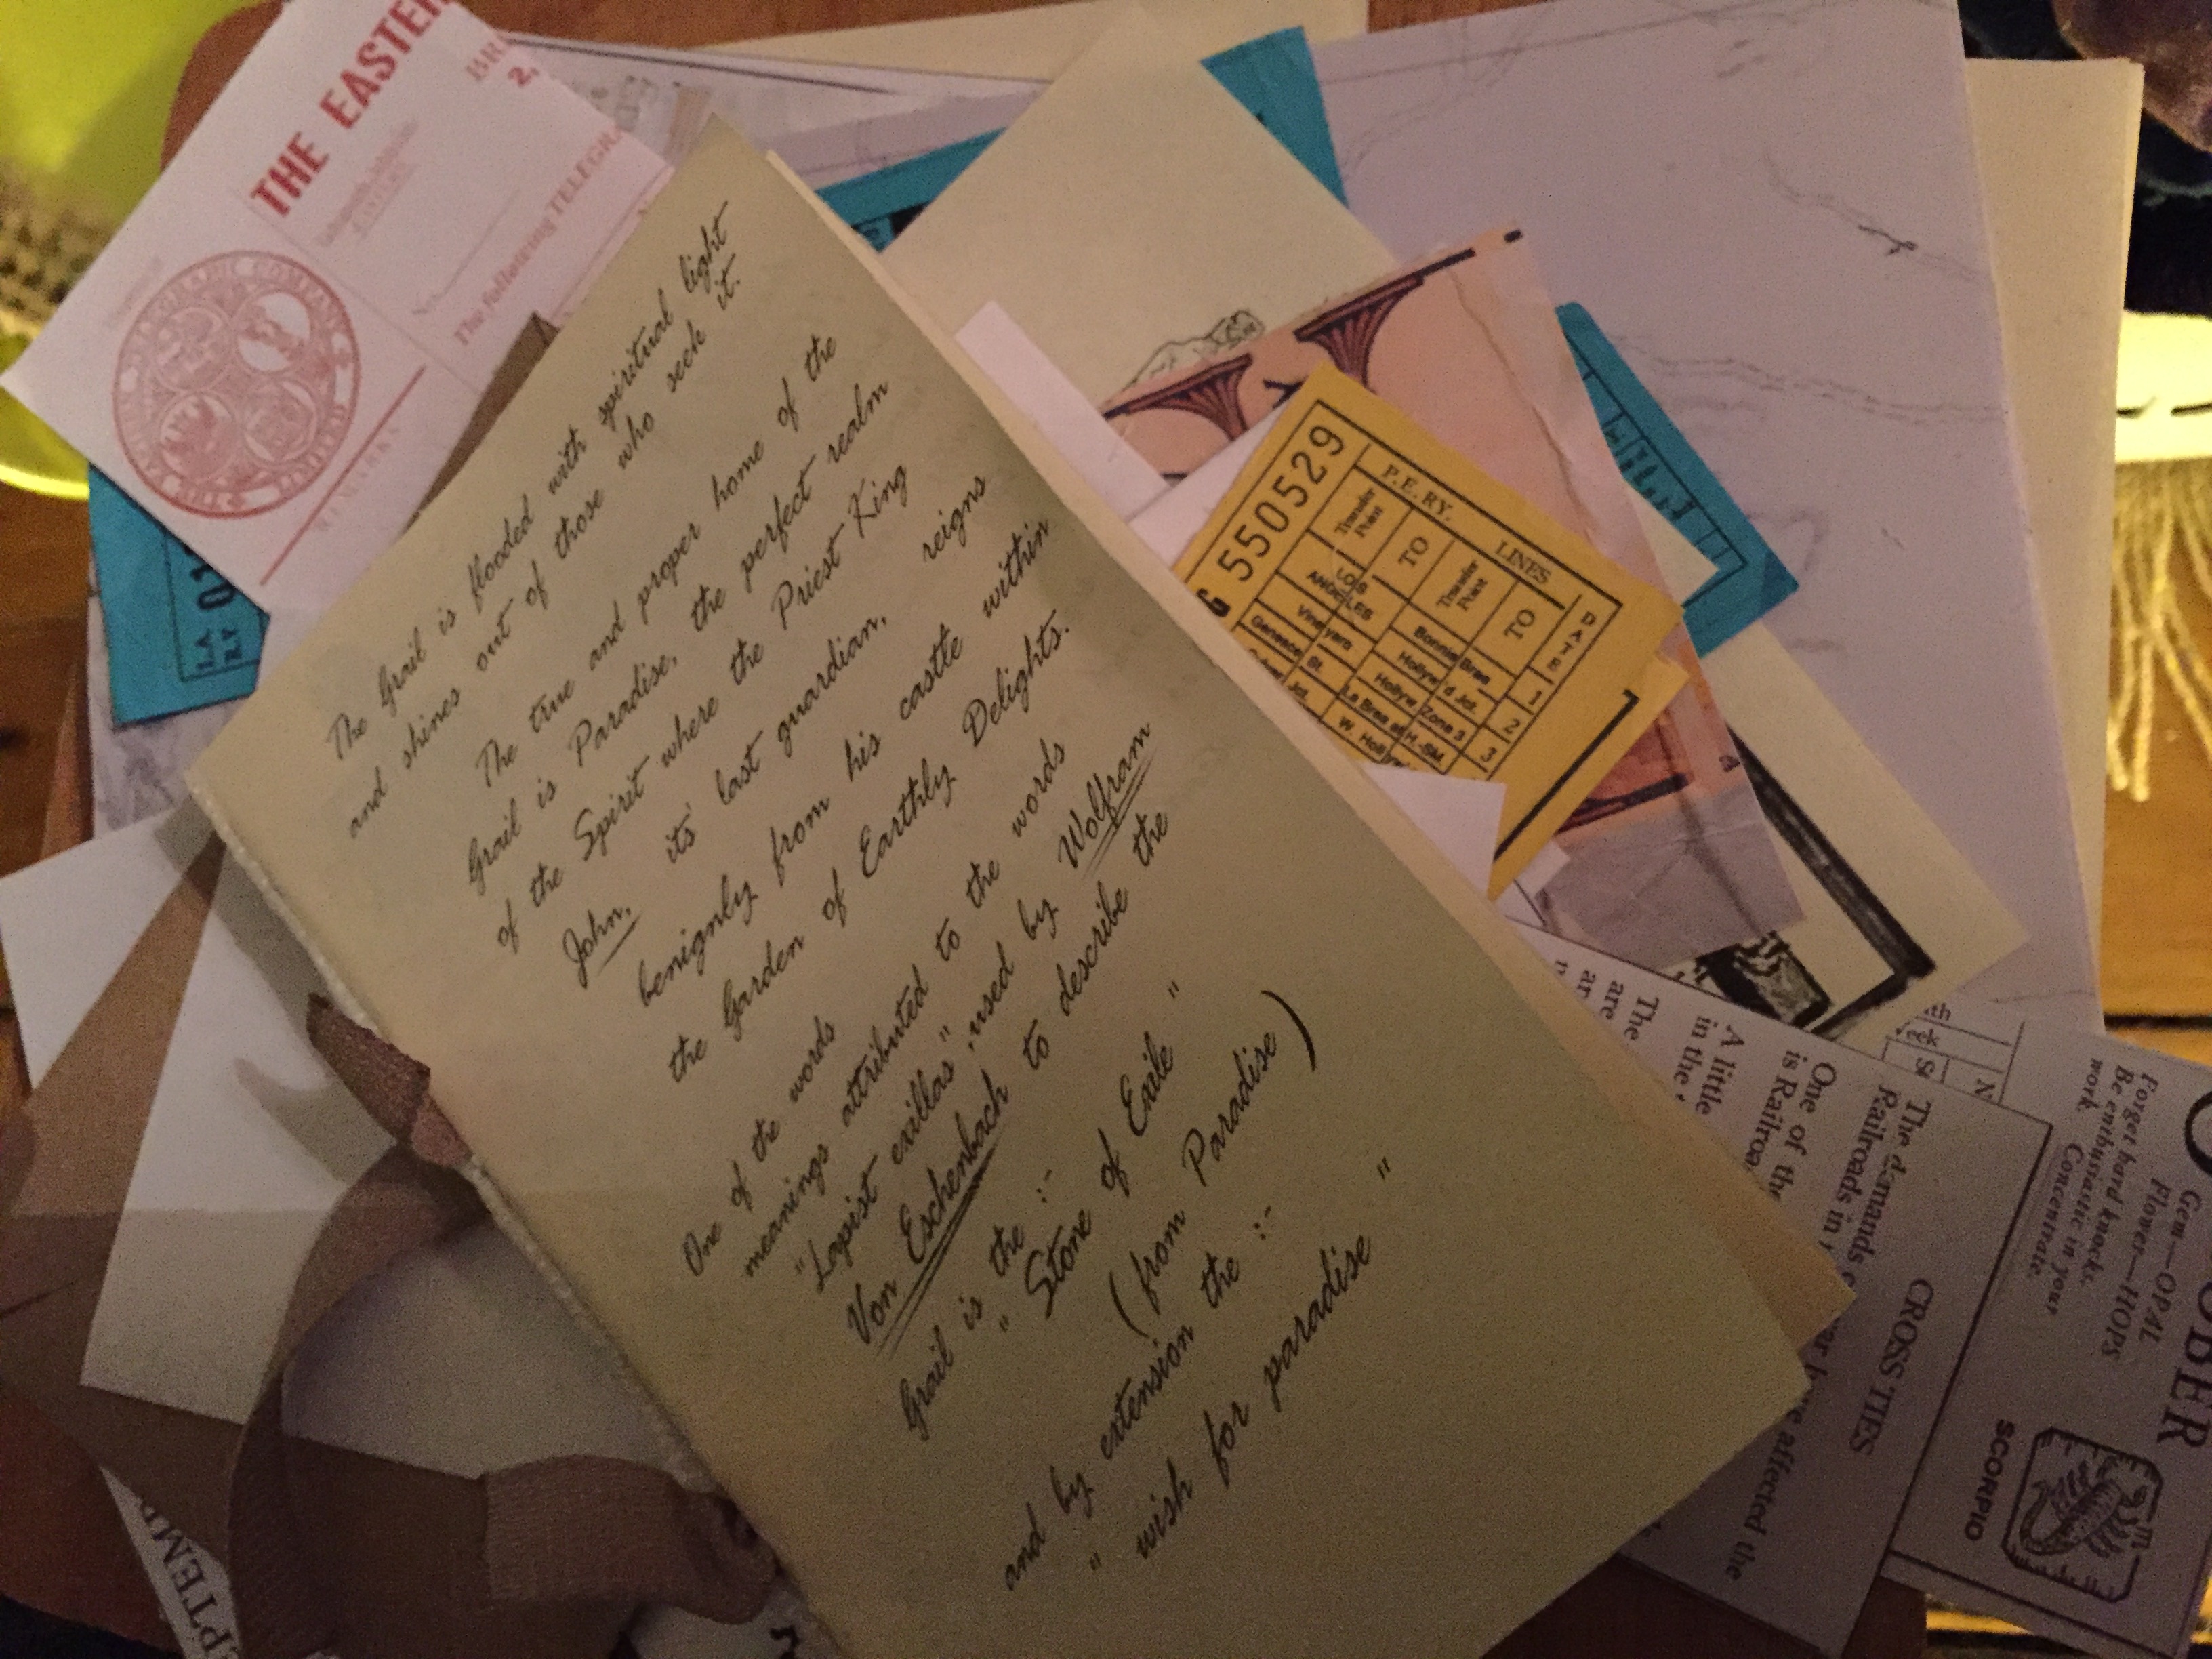 The Grail is flooded with spiritual light
and shines out of those who seek it.
The true and proper home of the
Grail is Paradise, the perfect realm
of the Spirit where the Priest King
John, its' last guardian, reigns
benignly from his castle within
the Garden of Earthly Delights.
One of the words
meanings attributed to the words
"Lapist exillas", used by Wolfram
Von Eschenbach to describe the
Grail is the :-
" Stone of Exile "
(from Paradise)
and by extension the :-
" wish for paradise "
THE EASTER
2.
The following TELEGRA
REMARKS
LA
RY
550529
P.E. RY. LINES
DATE
Transfer Point TO Transfer Point TO
LOS ANGELES Bonnie Brae 1
Vineyard Hollyw'd Jct. 2
Genesee St. Hollyw. Zone 3 3
La Brea at H.-SM
The
are
A little
in the
One of the
is Railroa
The demands
Railroads in
affected the
CROSS TIES
OBER
Gem—OPAL
Flower—HOPS
Forget hard knocks.
Be enthusiastic in your
work. Concentrate.
SCORPIO
PTEM